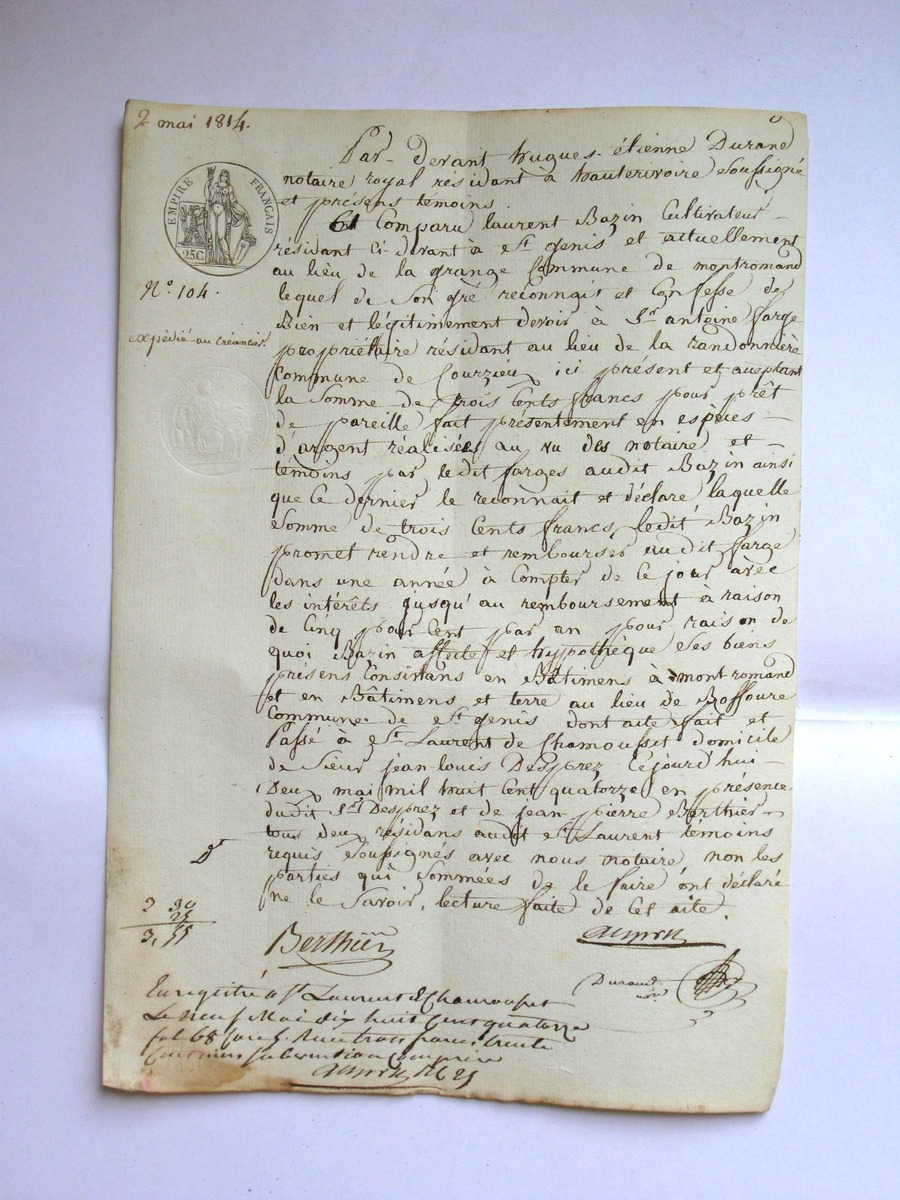 2 mai 1814.
Par-devant hugues-étienne Durand
notaire royal résidant à hauterivoire soussigné
et présens temoins.
EMPIRE FRANÇAIS
25C.
Et Comparu laurent Bazin Cultivateur
résidant ci-devant à St genis et actuellement
au lieu de la grange Commune de montromand
N° 104.
lequel de Son gré reconnait et Confesse de
Bien et légitimement devoir à Sr antoine farge
expédié au Créancier
propriétaire résidant au lieu de la randonnière
Commune de Courzieu, ici présent et aceptant
la Somme de trois Cents francs pour prêt
de pareille fait présentement en espèces
d'argent réalisées au vu des notaire et
témoins par ledit farges audit Bazin ainsi
que Ce dernier le reconnait et déclare, laquelle
Somme de trois Cents francs, ledit Bazin
promet rendre et rembourser audit farge
dans une année à Compter de Ce jour avec
les intérêts jusqu'au remboursement à raison
de Cinq pour Cent par an pour raison de
quoi Bazin affecte et hypothèque Ses biens
présens Consistans en Bâtimens à montromand
et en Bâtimens et terre au lieu de
Commune de St genis dont acte fait et
Passé à St Laurent de Chamousset domicile
de Sieur jean-louis Desprez, Cejourd'hui
Deux mai mil huit Cent quatorze en présence
dudit Sr Desprez et de jean pierre Berthier
tous deux résidans audit St Laurent témoins
requis Soussignés avec nous notaire, non les
parties qui Sommées de le faire ont déclaré
ne le Savoir, lecture faite de Cet acte.
3 30
25
3, 55
Berthier
Durand
Enregistré à St Laurent de Chamousset
Le neuf Mai dix huit Cent quatorze
fol 68 Reçu trois francs trente
Centimes subvention Comprise